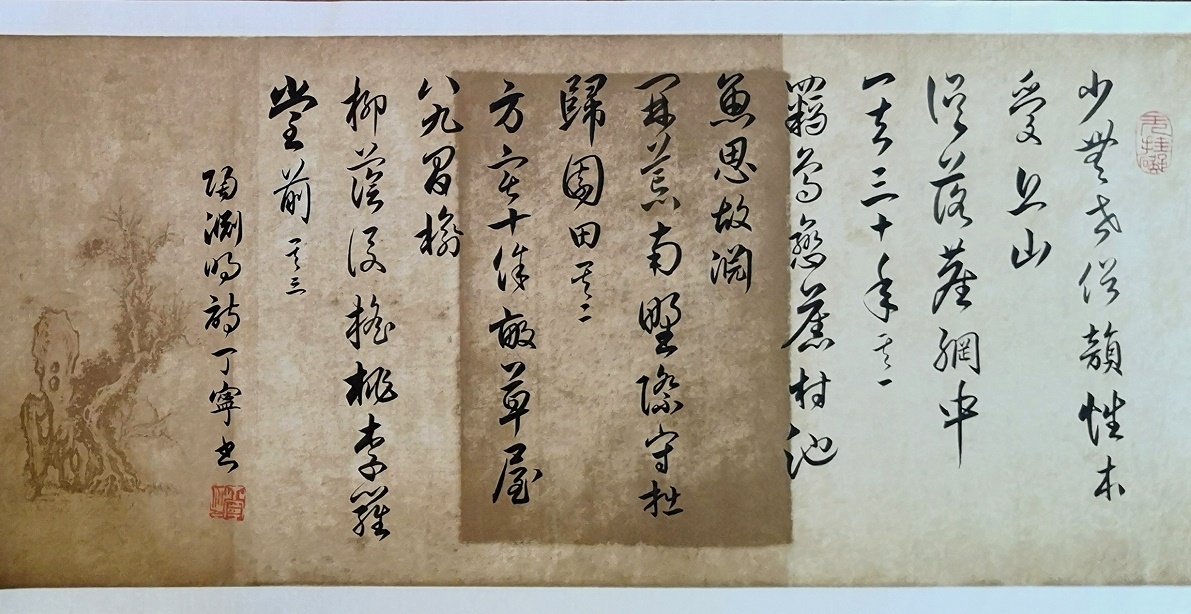 少無世俗韻性本
愛丘山
誤落塵網中
一去三十年 其一
羈鳥戀舊林池
魚思故淵
開荒南野際守拙
歸園田 其二
方宅十餘畝草屋
八九間榆
柳蔭後簷桃李羅
堂前 其三
陶淵明詩丁寧書